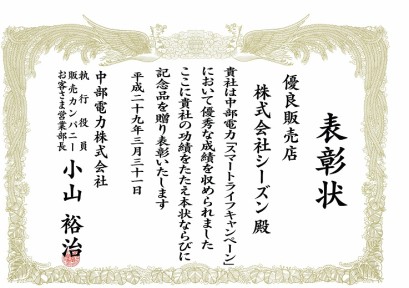 表彰状
優良販売店
株式会社シーズン 殿
貴社は中部電力「スマートライフキャンペーン」
において優秀な成績を収められました
ここに貴社の功績をたたえ本状ならびに
記念品を贈り表彰いたします
平成二十九年三月三十一日
中部電力株式会社
執行役員
販売カンパニー
お客さま営業部長
小山裕治